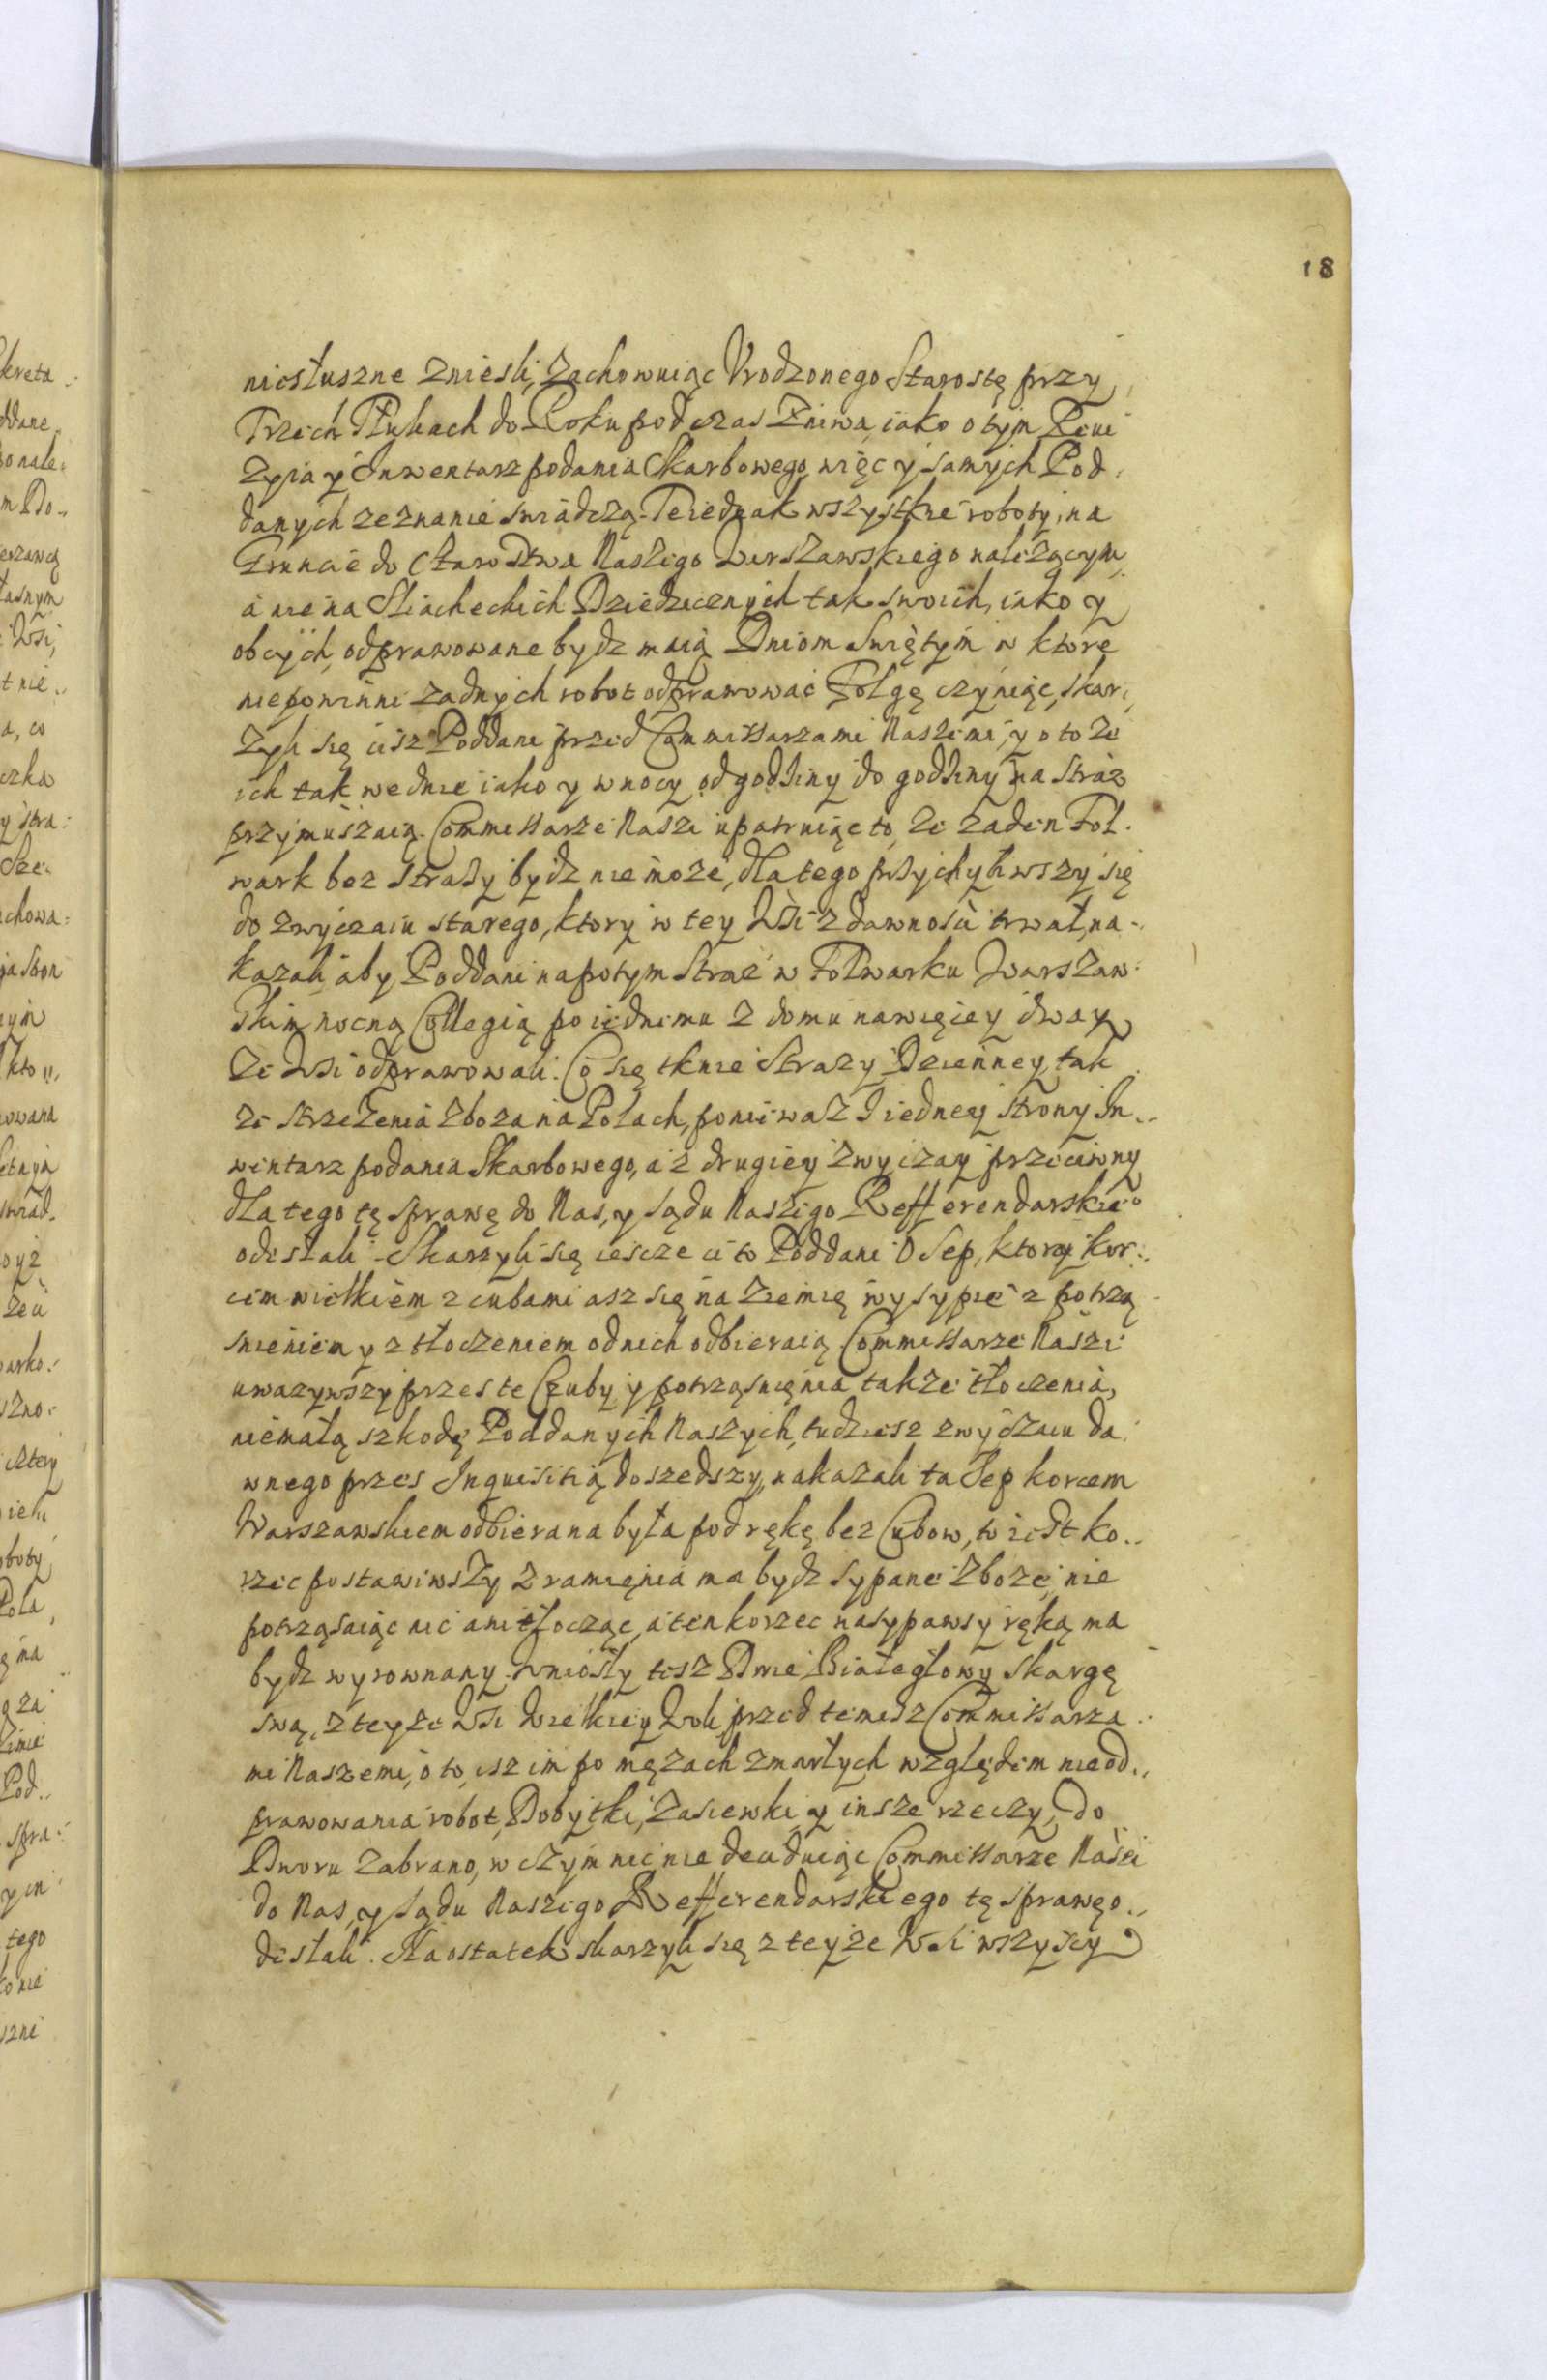 18
niesłuszne znieśli, zachowuiąc Vrodzonego Starostę przy
Trzech Tłukach do Roku podczas Zniwa, iako o tym Rewi
zyia y Inwentarz podania Skarbowego, więc y samych Pod.
danych zeznanie swiadczą. Te iednak wszystkie roboty, na
Gruncie do Starostwa Naszego Warszawskiego należącym,
a nie na Sliacheckich Dziedzicznych tak swoich, iako y
obcych, odprawowane bydz maią Dniom Swiętym w ktore
niepowinni zadnych robot odprawować Folgę czyniąc, skar,
żyli się iisz Poddani przed Commissarzami Naszemi, y o to że
ich tak we dnie iako y w nocy od godziny do godziny na Straż
przymuszaią. Commissarze Naszi upatruiąc to, że żaden Fol.
wark bez Straży bydz nie może, dla tego przychyliwszy się
do zwyczaiu starego, ktory w tey Wsi z dawności trwał, na..
kazali aby Poddani napotym Straż w Folwarku Warszaw:
skim nocną Collegią po iednemu z domu nawięcey dway
ze Wsi odprawowali. Co się tknie Straży Dzienney, tak
że strzeżenia zboża na Polach, ponieważ z iedney strony In..
wentarz podania Skarbowego, a z drugiey zwyczay przeciwny
dla tego tę sprawę do Nas, y Sądu Naszego Refferendarskie°
odesłali. Skarzyli się iescze ci to Poddani o Sep, ktory kor..
cem wielkiem z cubami asz się na Ziemię wysypie z potrzą
snieniem y z tłoczeniem od nich odbieraią. Commissarze Naszi
uwazywszy przes te Czuby y potrząsnięnia także tłoczenia,
niemałą szkodę Poddanych Naszych, tudziesz zwyczaiu da.
wnego przes Inquisitią doszedszy, nakazali ta Sep korcem
Warszawskiem odbierana była pod rękę bez Cubow, to iest ko..
rzec postawiwszy z ramięnia ma bydz sypane zboże, nie
potrząsaiąc nic ani tłocząc, a ten korzec nasypawsy ręką ma
bydz wyrownany. Wniosły tesz Dwie Białegłowy skargę
swą, z teyże Wsi Wielkiey Woli, przed temisz Commissarza..
mi Naszemi, o to, isz im po mężach zmarłych względem nieod..
prawowania robot, Dobytki, Zasiewki, y insze rzeczy, do
Dworu zabrano, w czym nic nie decyduiąc Commissarze Naszi
do Nas, y Sądu Naszego Refferendarskiego tę sprawę o..
desłali. Naostatek skarzyli się z teyże Wsi wszyscy